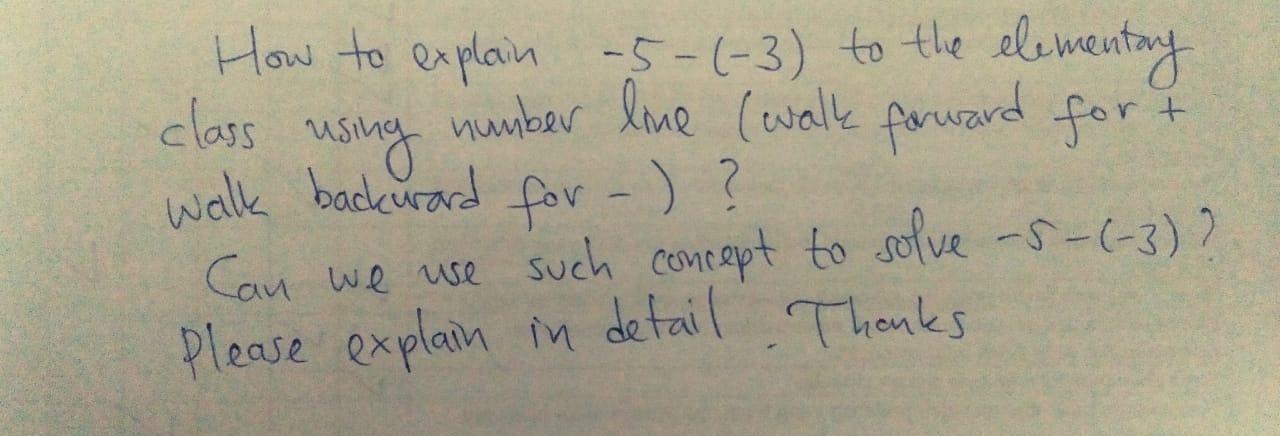 How to explain -5-(-3) to the elementary
class using number line (walk forward for +
walk backward for -) ?
Can we use such concept to solve -5-(-3)?
Please explain in detail. Thanks